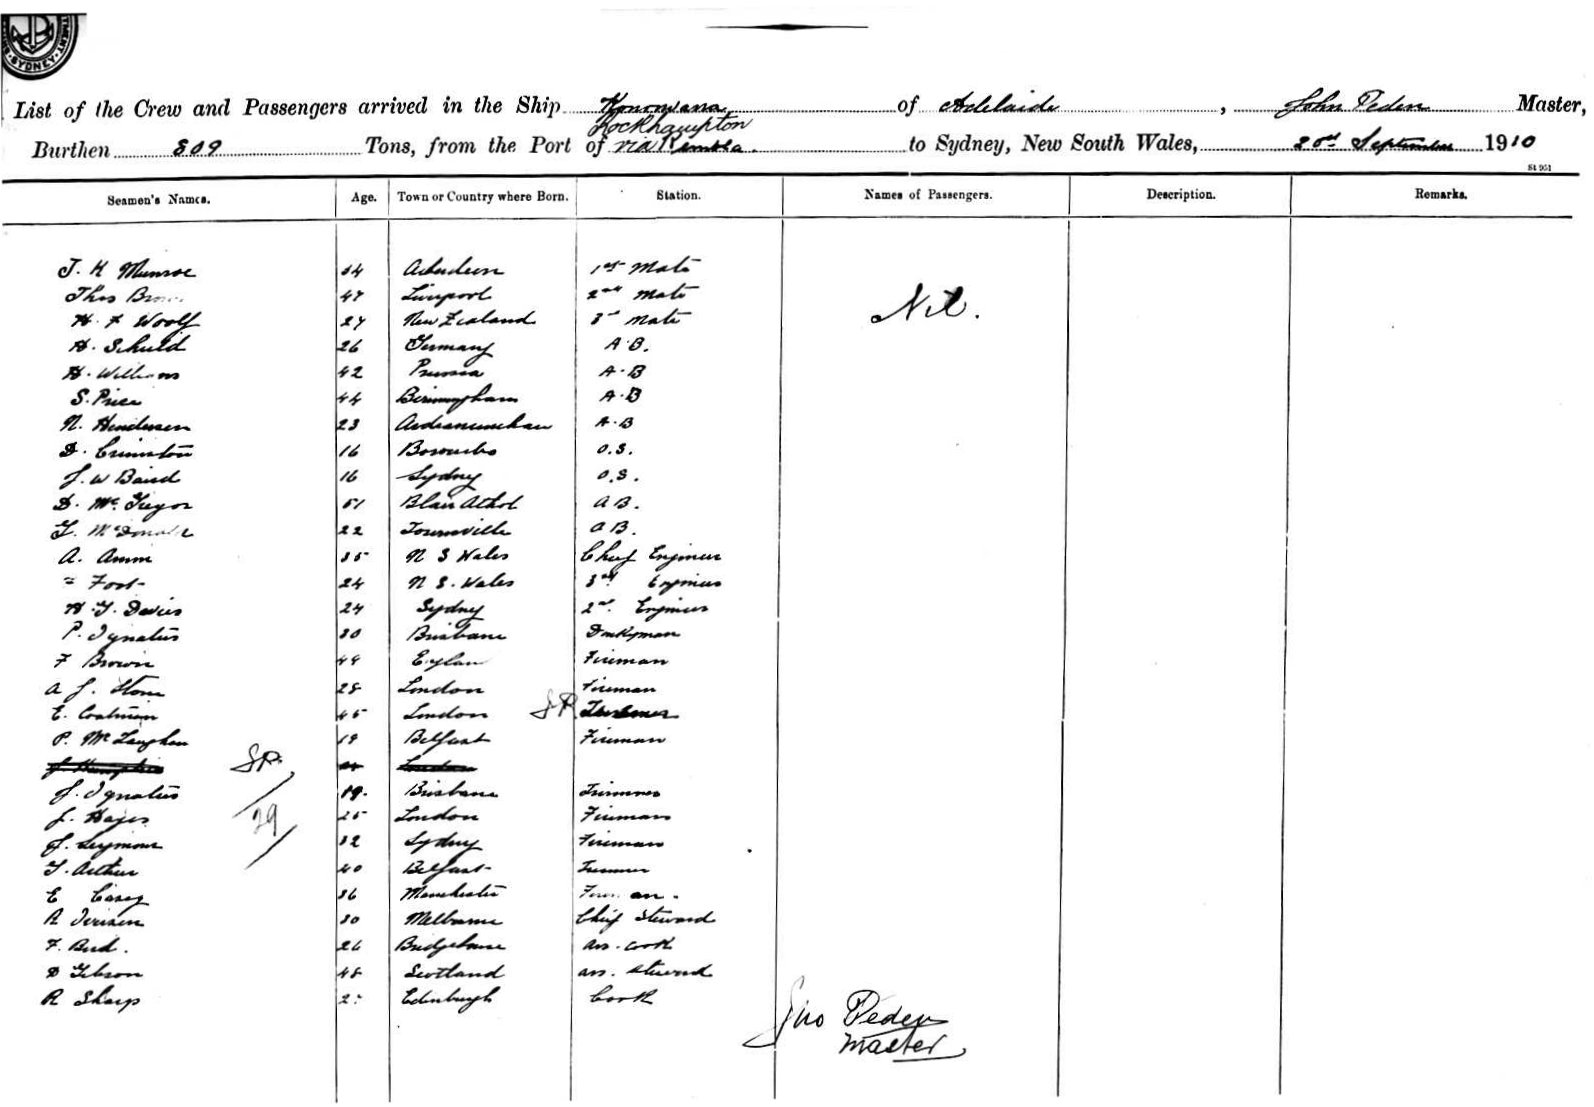 SYDNEY
List of the Crew and Passengers arrived in the Ship Konowarra of Adelaide, John Peden Master,
Rockhampton
Burthen 809 Tons, from the Port of via Kembla to Sydney, New South Wales, September 1910
St 951
Seamen's Names. Age. Town or Country where Born. Station. Names of Passengers. Description. Remarks.
J. K Munroe 34 Aberdeen 1st Mate
Thos 47 Liverpool 2nd Mate Nil.
H. F Woolf 27 New Zealand 3rd Mate
H. Schuld 26 Germany A.B.
H. Williams 42 Prussia A.B
S. Price 44 Birmingham A.B
N. Henderson 23 A.B
D. 16 O.S.
J. W Baird 16 Sydney O.S.
D. McGregor 51 Blair Athol AB.
McDonald 22 Townsville AB.
A. Amm 35 N S Wales Chief Engineer
" Foot 24 N S. Wales 3rd Engineer
Davies 24 Sydney 2nd Engineer
P. Ignatius 30 Brisbane Donkyman
F Brown 49 Fireman
A J. Stone 28 London Fireman
E. 45 London JP
P. McLaughlin 19 Belfast Fireman
London JP.
J. Ignatius 19. Brisbane Trimmer
J. Hayes 25 London Fireman
29
J. Seymour 32 Sydney Fireman
T. Arthur 40 Belfast Trimmer
E Casey 36 Manchester
R Iversen 30 Melbourne Chief Steward
F. 26 ass. Cook
D Gibson 48 Scotland ass. Steward
R Sharp Edinburgh Cook
Jno Peden
Master